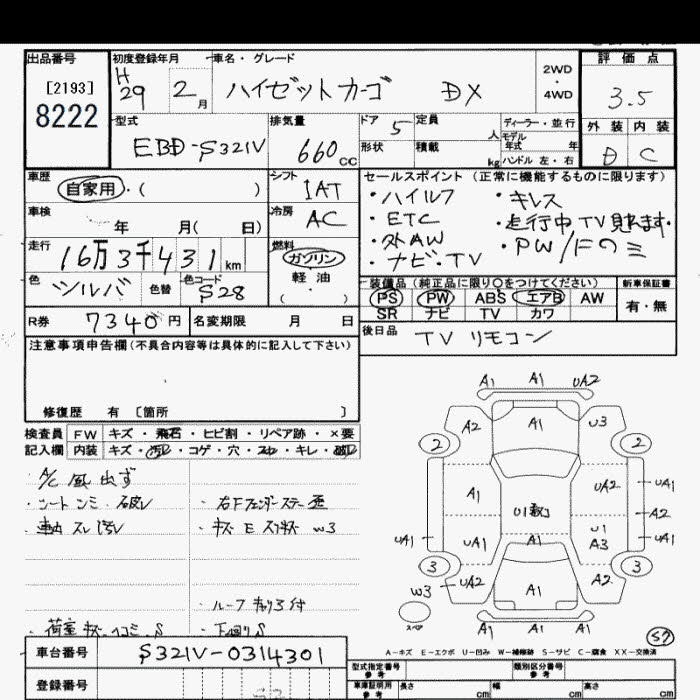 出品番号 初度登録年月 車名・グレード 評価点
[2193]
8222
H29 2月 ハイゼットカーゴ DX
2WD・4WD
3.5
外装 内装
D C
型式 排気量 ドア 定員 ディーラー・並行
EBD-S321V 660CC 5 人
モデル年式 年
形状 積載 kg ハンドル 左・右
車歴 シフト セールスポイント (正常に機能するものに限ります)
自家用・( ) IAT
・ハイルフ ・キレス
車検 年 月( 日) 冷房 AC
・ETC ・走行中TV見れます・
・外AW ・PW/Fのミ
・ナビ・TV
走行 16万3千431km 燃料 ガソリン
軽油
( )
色 シルバ 色替 色コード S28
装備品(純正品に限り○をつけてください) 新車保証書
PS PW ABS エアB AW 有・無
SR ナビ TV カワ
R券 7340円 名変期限 月 日
後日品 TV リモコン
注意事項申告欄(不具合内容等は具体的に記入して下さい)
修復歴 有 〔箇所 〕
検査員 FW キズ・飛石・ヒビ割・リペア跡・×要
記入欄 内装 キズ・汚レ・コゲ・穴・・キレ・破レ
A/C 風 出ず
・破レ ・右Fフェンダーステー歪
スレ汚レ ・ W3
・ルーフ 付
・荷室 キズ ヘコミ S ・下回りS
A1 A1 UA2
A2 A1 U3
2 2
A1 UA2 UA1
A2
UA1 UA1 A1 U1 A3 UA1
3 3
W3 UA2 A1 A2
スペア
A1 A1 A1
S7
A-キズ E-エクボ U-凹み W-補修跡 S-サビ C-腐食 XX-交換済
車台番号 S321V-0314301
型式指定番号 参考 類別区分番号 参考
登録番号
車庫証明用 参考 長さ cm 幅 cm 高さ cm